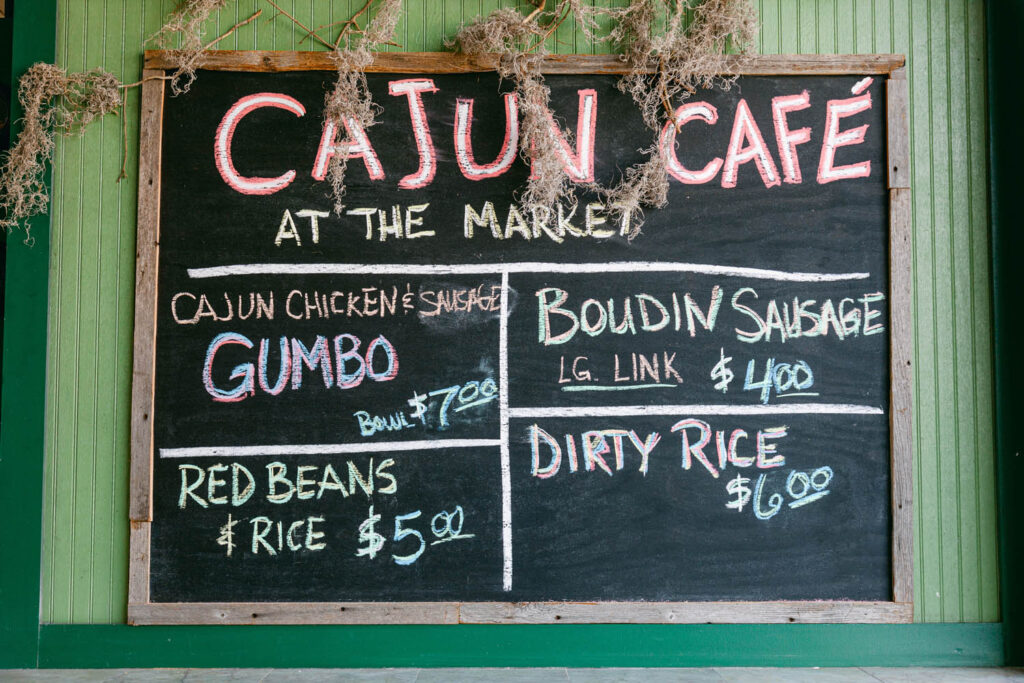 CAJUN CAFÉ
AT THE MARKET
CAJUN CHICKEN & SAUSAGE
GUMBO
BOWL $7.00
RED BEANS
& RICE $5.00
BOUDIN SAUSAGE
LG. LINK $4.00
DIRTY RICE
$6.00